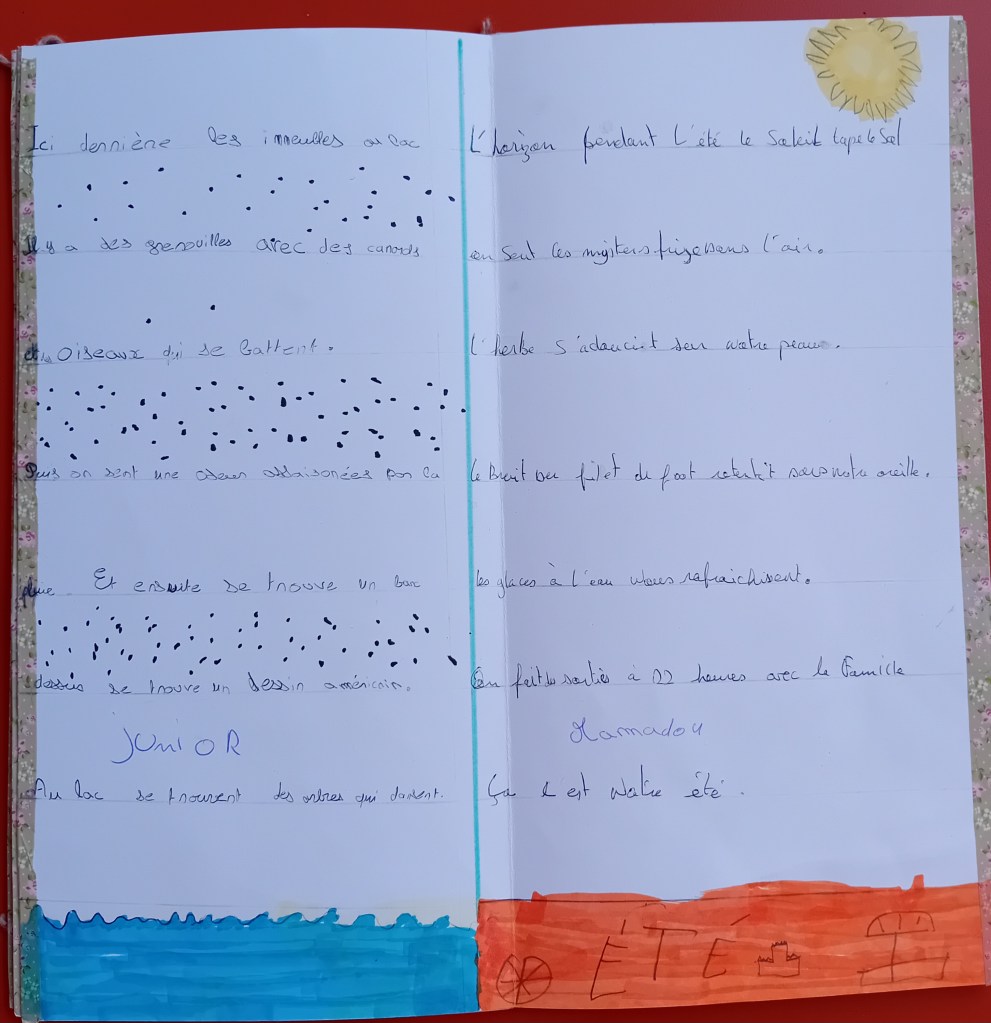 Ici dennière les immeulles au lac
Il y a des grenouilles avec des canards
Oiseaux qui se battent.
Puis on sent une odeur assaisonées par la
pluie. Et ensuite se trouve un banc
dessus se trouve un dessin américain.
JUNIOR
Au lac se trouvent des arbres qui dansent.
L'horizon pendant L'été le Soeleil tape le Sol
on Sent les dans l'air.
L'herbe s'adoucit sur notre peau.
Le Bruit du filet de foot retentit dans notre oreille.
les glaces à l'eau nous rafraichisent.
On fait des sortiés à 22 heures avec la Famille
Mamadou
Ça c'est Notre été.
ÉTÉ